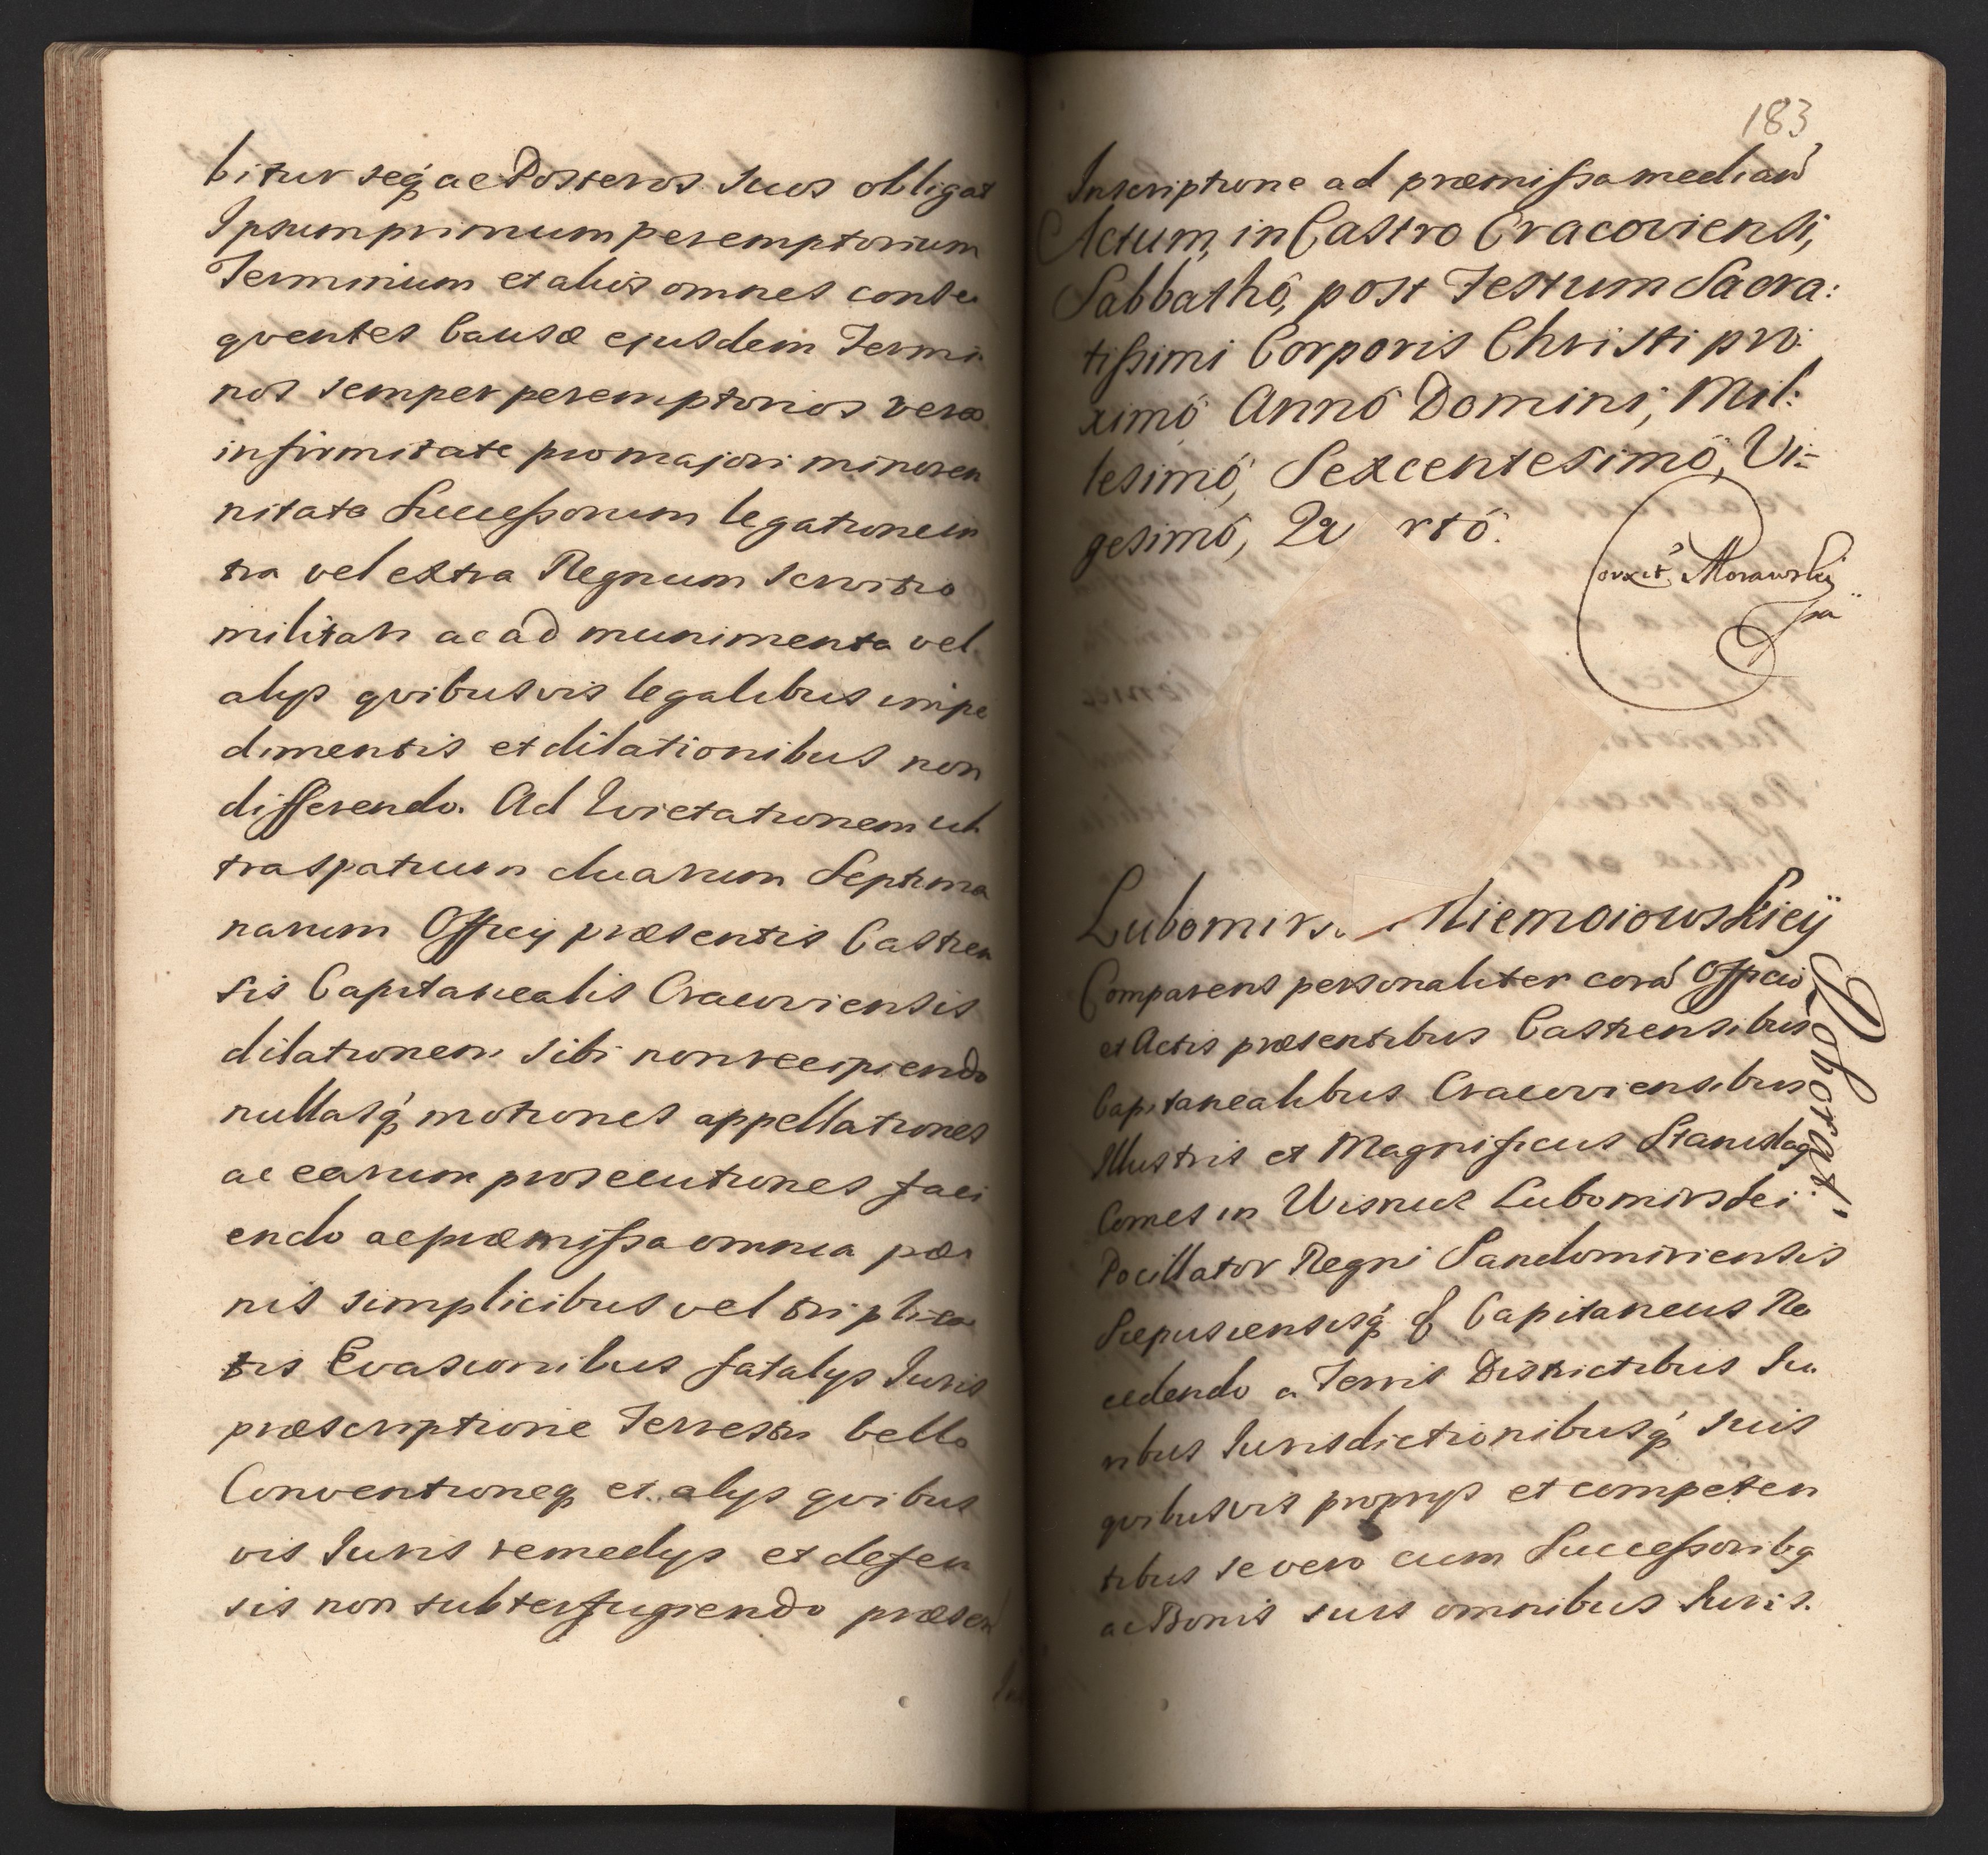 bitur seq́ ac Posteros suos obligat
Ipsum primum peremptorium
Terminum et alios omnes conse
qventes Causæ ejusdem Termi
nos semper peremptorios vera
infirmitate pro majori minoren
nitate Successorum legatione in
tra vel extra Regnum servitio
militari ac ad munimenta vel
alijs qvibusvis legalibus impe
dimentis et dilationibus non
differendo. Ad Evictationem ul
tra spatium duarum Septima
narum Officij præsentis Castren
sis Capitanealis Cracoviensis
dilationem sibi non recipiendo
nullasq́ motiones appellationes
ac earum prosecutiones faci
endo ac præmissa omnia pæ
nis simplicibus vel triplica
tis Evasionibus fatalijs Iuris
præscriptione Terrestri bello
Conventioneq et alijs qvibus
vis Iuris remedijs et defen
sis non subterfugiendo præsen
183
Inscriptione ad præmissa median
Actum, in Castro Cracoviensi,
Sabbathô, post Festum Sacra:
tissimi Corporis Christi pro:
ximô Annô Domini, Mil:
lesimô, Sexcentesimô, Vi=
gesimô, Qu rtô.
Corxit Morawski
Lubomirs. Niemoiowskieÿ
Comparens personaliter corã Officio
et Actis præsentibus Castrensibus
Capitanealibus Cracoviensibus
Illustris et Magnificus Stanislaq
Comes in Wisnicz Lubomirski
Pocillator Regni Sandomiriensis
Scepusiensisq́ & Capitaneus Re
cedendo a Terris Districtibus Iu
ribus Iurisdictionibusq́ suis
qvibusvis proprijs et competen
tibus se vero cum Successoribq
ac Bonis suis omnibus Iuris.
Roborat